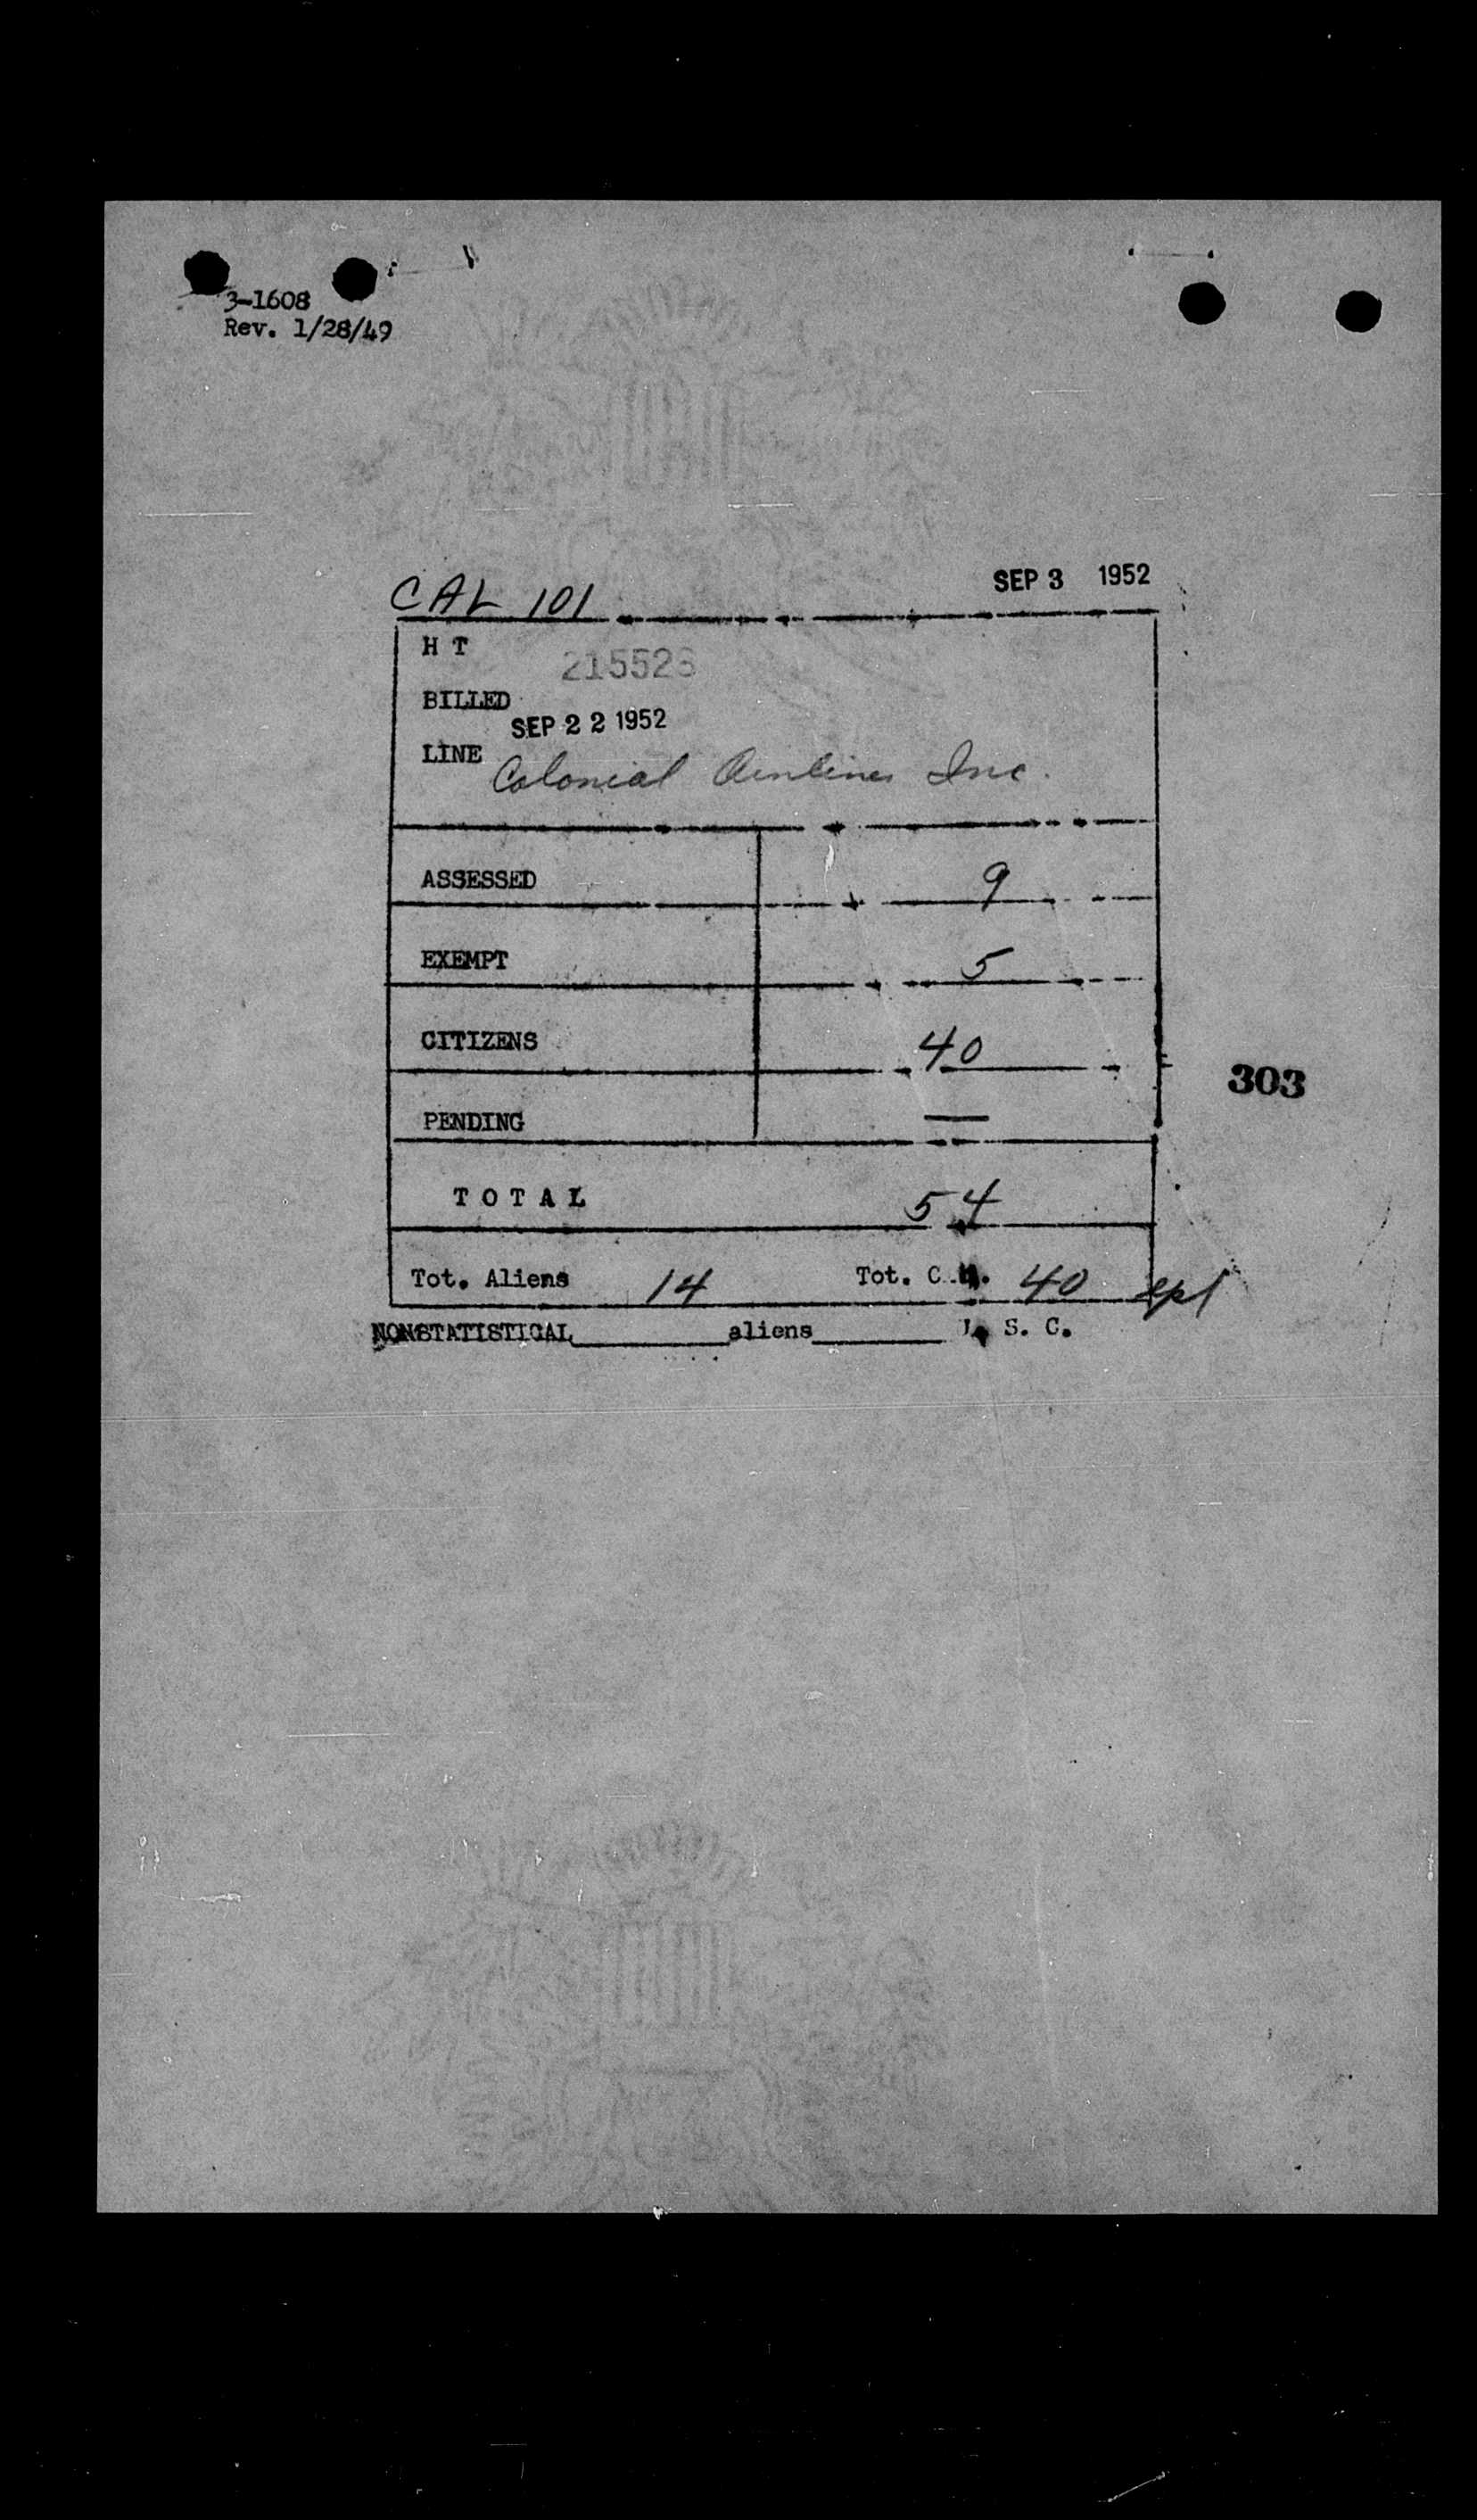 3-1608
Rev. 1/28/49
CAL 101 SEP 3 1952
H T 215526
BILLED
SEP 22 1952
LINE Colonial Airlines Inc.
ASSESSED 9
EXEMPT 5
CITIZENS 40
303
PENDING —
TOTAL 54
Tot. Aliens 14 Tot. C. 40
NONSTATISTICAL_______aliens_______U. S. C.